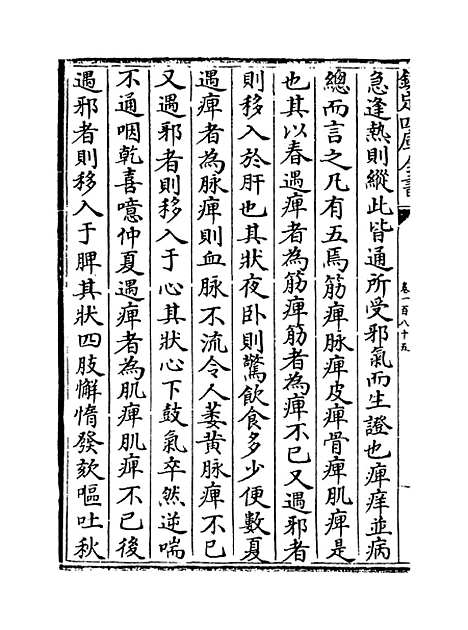 欽定四庫全書
卷一百八十五
急逢熱則縱此皆通所受邪氣而生證也痺痒並病
總而言之凡有五焉筋痺脉痺皮痺骨痺肌痺是
也其以春遇痺者為筋痺筋者為痺不已又遇邪者
則移入於肝也其狀夜卧則驚飲食多少便數夏
遇痺者為脉痺則血脉不流令人萎黄脉痺不已
又遇邪者則移入于心其狀心下鼓氣卒然逆喘
不通咽乾喜噫仲夏遇痺者為肌痺肌痺不已後
遇邪者則移入于脾其狀四肢懈惰發欬嘔吐秋